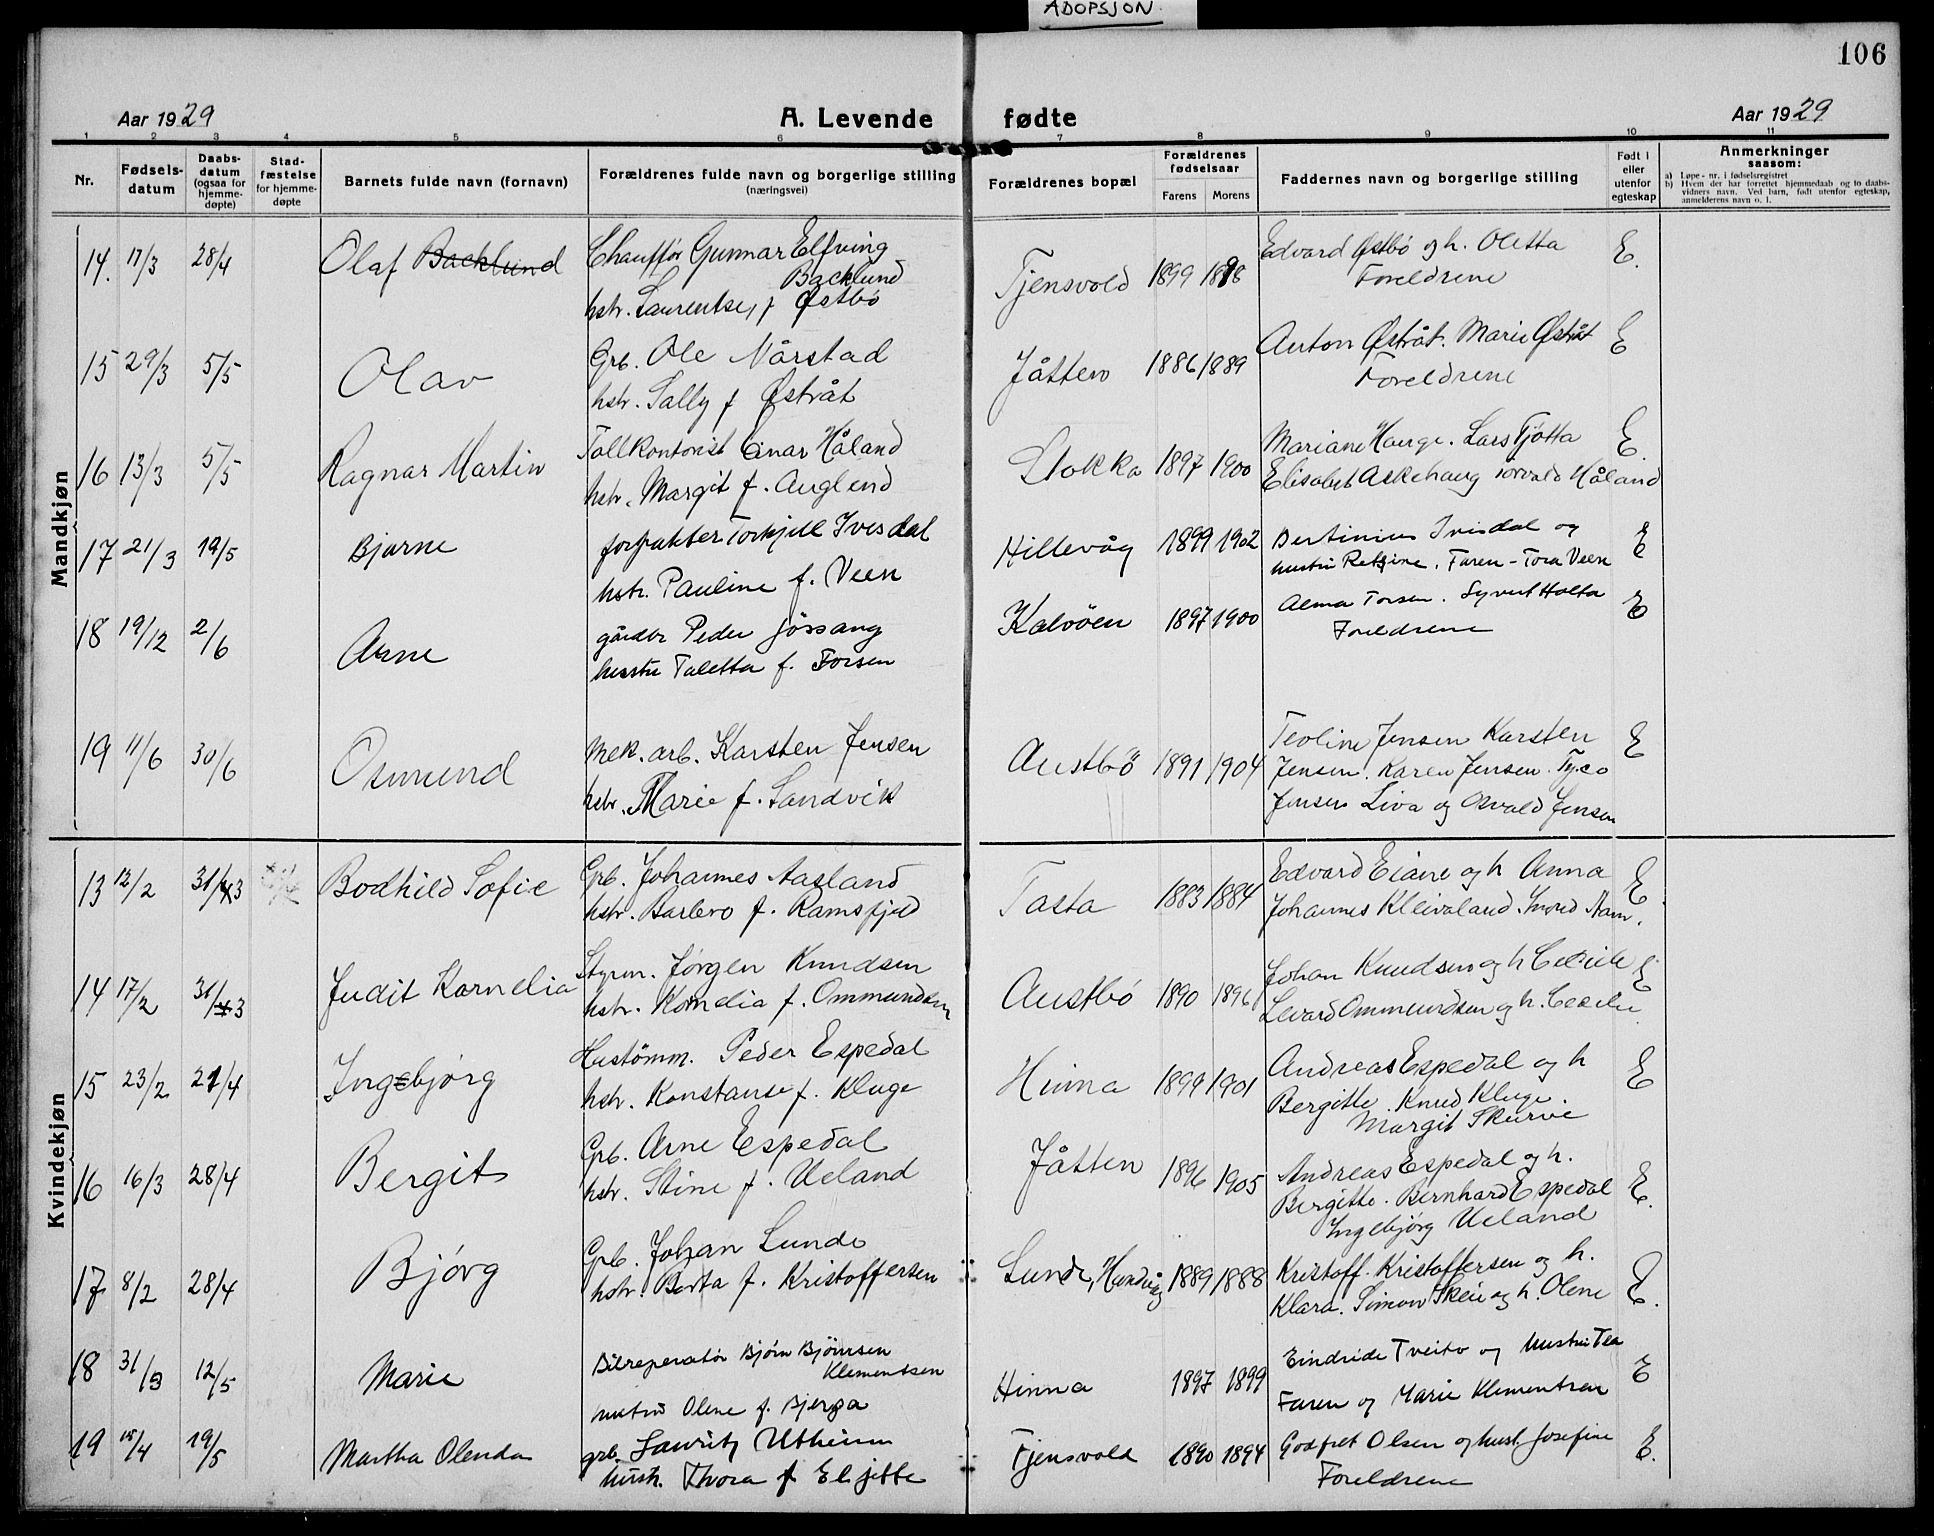 ADOPSJON.
106
Aar 1929 A. Levende fødte Aar 1929
1 2 3 4 5 6 7 8 9 10 11
Nr. Fødsels-datum Daabs-datum (ogsaa for hjemme-døpte) Stad-fæstelse for hjemme-døpte Barnets fulde navn (fornavn) Forældrenes fulde navn og borgerlige stilling (næringsvei) Forældrenes bopæl Forældrenes fødselsaar Farens Morens Faddernes navn og borgerlige stilling Født i eller utenfor egteskap Anmerkninger saasom:
a) Løpe-nr. i fødselsregistret
b) Hvem der har forrettet hjemmedaab og to daabs-vidners navn. Ved barn, født utenfor egteskap, anmelderens navn o. l.
Mandkjøn
14. 17/3 28/4 Olaf Backlund Chauffør Gunnar Elfving Backlund Tjensvold 1899 1898 Edvard Østbø og h. Oletta E.
hstr. Laurentse, f Østbø Foreldrene
15 29/3 5/5 Olav Grb. Ole Nårstad Jåtten 1886 1889 Anton Østråt. Marie Østråt E
hstr. Sally f Østråt Foreldrene
16 13/3 5/5 Ragnar Martin Tollkontorist Einar Håland Stokka 1897 1900 Mariane Hauge. Lars Tjøtta E.
hstr. Margit f. Auglend Elisabet Askehaug Torvald Håland
17 21/3 19/5 Bjarne forpakter Torkjell Ivesdal Hillevåg 1899 1902 Bertinius Ivesdal og E
hstr. Pauline f. Veen hustru Retzine. Faren - Tora Veen
18 19/12 2/6 Arne gårdbr Peder Jøssang Kalvöen 1897 1900 Alma Torsen. Syvert Holta E
hustru Taletta f. Torsen Foreldrene
19 11/6 30/6 Osmund Mek. arb. Karsten Jensen Austbö 1891 1904 Teoline Jensen Karsten E
hstr. Marie f. Sandvik Jensen. Karen Jensen. Tyco
Jensen Liva og Osvald Jensen
Kvindekjøn
13 12/2 31/3 Bodhild Sofie Grb. Johannes Aasland Tasta 1883 1884 Edvard Eiane og h Anna E.
hstr. Barbro f. Ramsfjeld Johannes Kleivaland.
14 17/2 31/3 Judit Kornelia Styrm. Jørgen Knudsen Austbö 1890 1896 Johan Knudsen og h Cecilie E
hstr. Kornelia f. Ommundsen Sevard Ommundsen og h. Cecilie
15 23/2 21/4 Ingebjørg Hustömm. Peder Espedal Hinna 1899 1901 Andreas Espedal og h E
hstr. Konstanse f. Kluge Bergitte. Knud Kluge.
Margit Skurve
16 16/3 28/4 Bergit Grb. Arne Espedal Jåtten 1896 1905 Andreas Espedal og h. E.
hstr. Stine f. Ueland Bergitte. Bernhard Espedal
Ingebjørg Ueland
17 8/2 28/4 Bjørg Grb. Johan Lunde Lunde, Hundvåg 1889 1888 Kristoff. Kristoffersen og h. E.
hstr. Berta f. Kristoffersen Klara. Simon Skeie og h. Olene
18 31/3 12/5 Marie Bilreperatör Bjørn Bjørnsen Klementsen Hinna 1897 1899 Eindride Tveito og hustru Tea E
hustru Olene f. Bjerga Faren og Marie Klementsen
19 15/4 19/5 Martha Olenda grb. Lauritz Utheim Tjensvold 1890 1894 Godfret Olsen og hust. Josefine E.
hustr. Thora f Eltjette Foreldrene